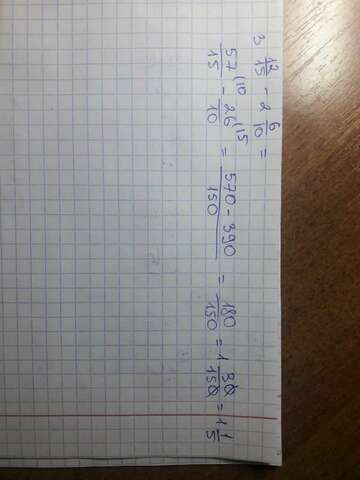 3 12/15 - 2 6/10 =
57/15 (10 - 26/10 (15 = 570 - 390/150 = 180/150 = 1 30/150 = 1 1/5